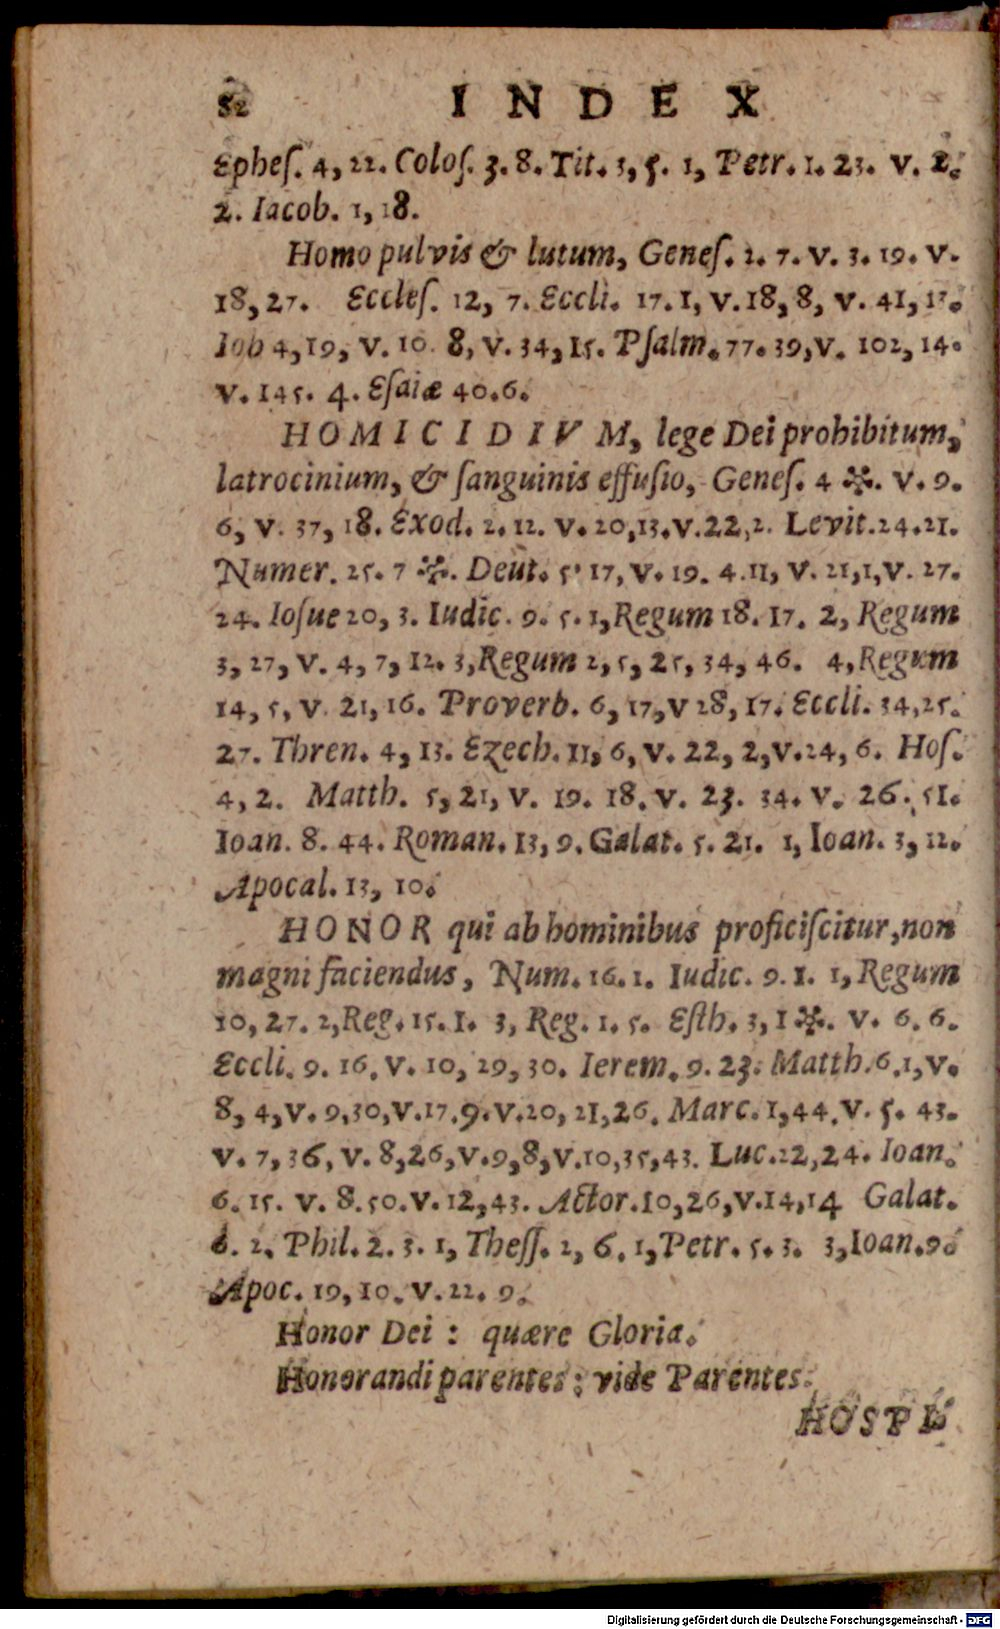 52 INDEX
Epheſ. 4, 22. Coloſ. 3. 8. Tit. 3, 5. 1, Petr. 1. 23. v. 2.
2. Iacob. 1, 18.
Homo pulvis & lutum, Geneſ. 2. 7. v. 3. 19. v.
18, 27. Eccleſ. 12, 7. Eccli. 17. 1, v. 18, 8, v. 41, 13.
Iob 4, 19, v. 10. 8, v. 34, 15. Pſalm. 77. 39, v. 102, 14.
v. 145. 4. Eſaiæ 40. 6.
HOMICIDIVM, lege Dei prohibitum,
latrocinium, & ſanguinis effuſio, Geneſ. 4 *. v. 9.
6, v. 37, 18. Exod. 2. 12. v. 20, 13. v. 22, 2. Levit. 24. 21.
Numer. 25. 7 *. Deut. 5. 17, v. 19. 4. 11, v. 21, 1, v. 27.
24. Ioſue 20, 3. Iudic. 9. 5. 1, Regum 18. 17. 2, Regum
3, 27, v. 4, 7, 12. 3, Regum 2, 5, 25, 34, 46. 4, Regum
14, 5, v. 21, 16. Proverb. 6, 17, v 28, 17. Eccli. 34, 25.
27. Thren. 4, 13. Ezech. 11, 6, v. 22, 2, v. 24, 6. Hoſ.
4, 2. Matth. 5, 21, v. 19. 18. v. 23. 34. v. 26. 51.
Ioan. 8. 44. Roman. 13, 9. Galat. 5. 21. 1, Ioan. 3, 12.
Apocal. 13, 10.
HONOR qui ab hominibus proficiſcitur, non
magni faciendus, Num. 16. 1. Iudic. 9. 1. 1, Regum
10, 27. 2, Reg. 15. 1. 3, Reg. 1. 5. Eſth. 3, 1 *. v. 6. 6.
Eccli. 9. 16. v. 10, 29, 30. Ierem. 9. 23. Matth. 6. 1, v.
8, 4, v. 9, 30, v. 17. 9. v. 20, 21, 26. Marc. 1, 44. v. 5. 43.
v. 7, 36, v. 8, 26, v. 9, 8, v. 10, 35, 43. Luc. 22, 24. Ioan.
6. 15. v. 8. 50. v. 12, 43. Actor. 10, 26, v. 14, 14 Galat.
6. 2. Phil. 2. 3. 1, Theſſ. 2, 6. 1, Petr. 5. 3. 3, Ioan. 9.
Apoc. 19, 10. v. 22. 9.
Honor Dei : quære Gloria.
Honorandi parentes : vide Parentes.
HOSPI-
Digitalisierung gefördert durch die Deutsche Forschungsgemeinschaft - DFG